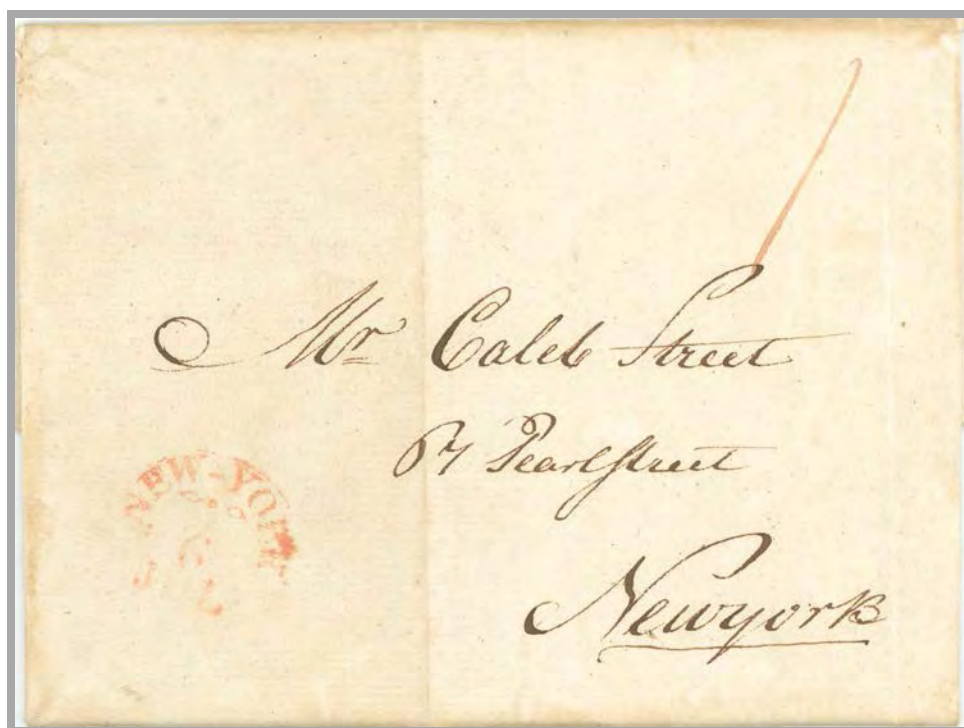 Mr Caleb Street
67 Pearl Street
Newyork
NEW-YORK